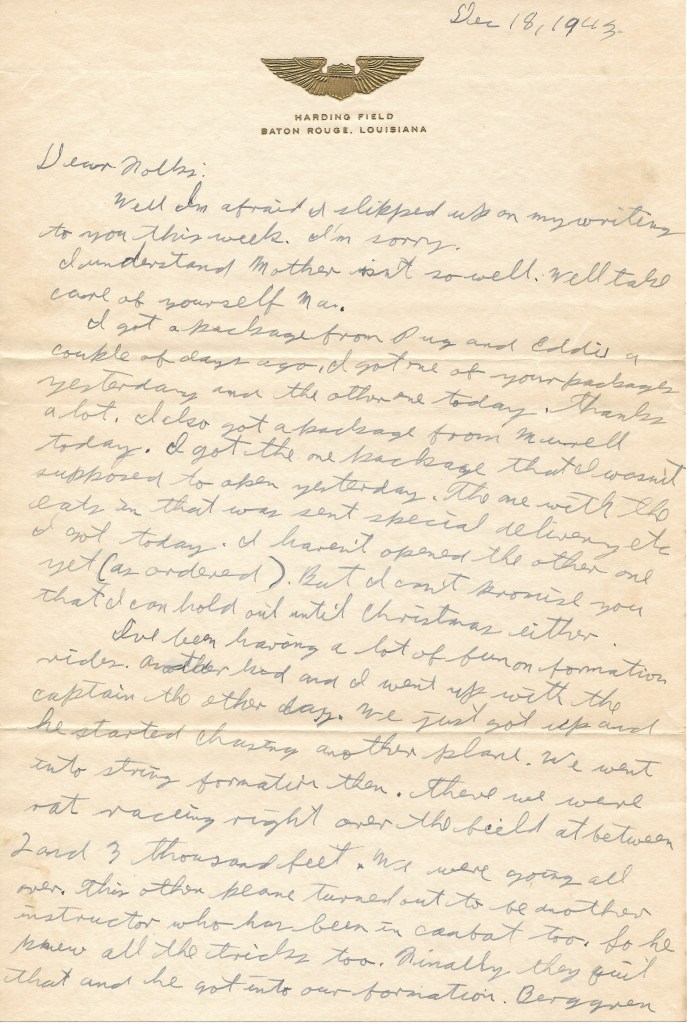 Dec 18, 1943
HARDING FIELD
BATON ROUGE, LOUISIANA
Dear Folks:
Well I'm afraid I slipped up on my writing
to you this week. I'm sorry.
I understand Mother isn't so well. Well take
care of yourself Ma.
I got a package from Pug and Eddie a
couple of days ago. I got one of your packages
yesterday and the other one today. Thanks
a lot. I also got a package from Murrell
today. I got the one package that I wasn't
supposed to open yesterday. The one with the
eats in that was sent special delivery etc
I got today. I haven't opened the other one
yet (as ordered). But I can't promise you
that I can hold out until Christmas either.
I've been having a lot of fun on formation
rides. Another kid and I went up with the
captain the other day. We just got up and
he started chasing another plane. We went
into string formation then. There we were
rat raceing right over the field at between
2 and 3 thousand feet. We were going all
over. This other plane turned out to be another
instructor who has been in combat too. So he
knew all the tricks too. Finally they quit
that and he got into our formation. Berggren